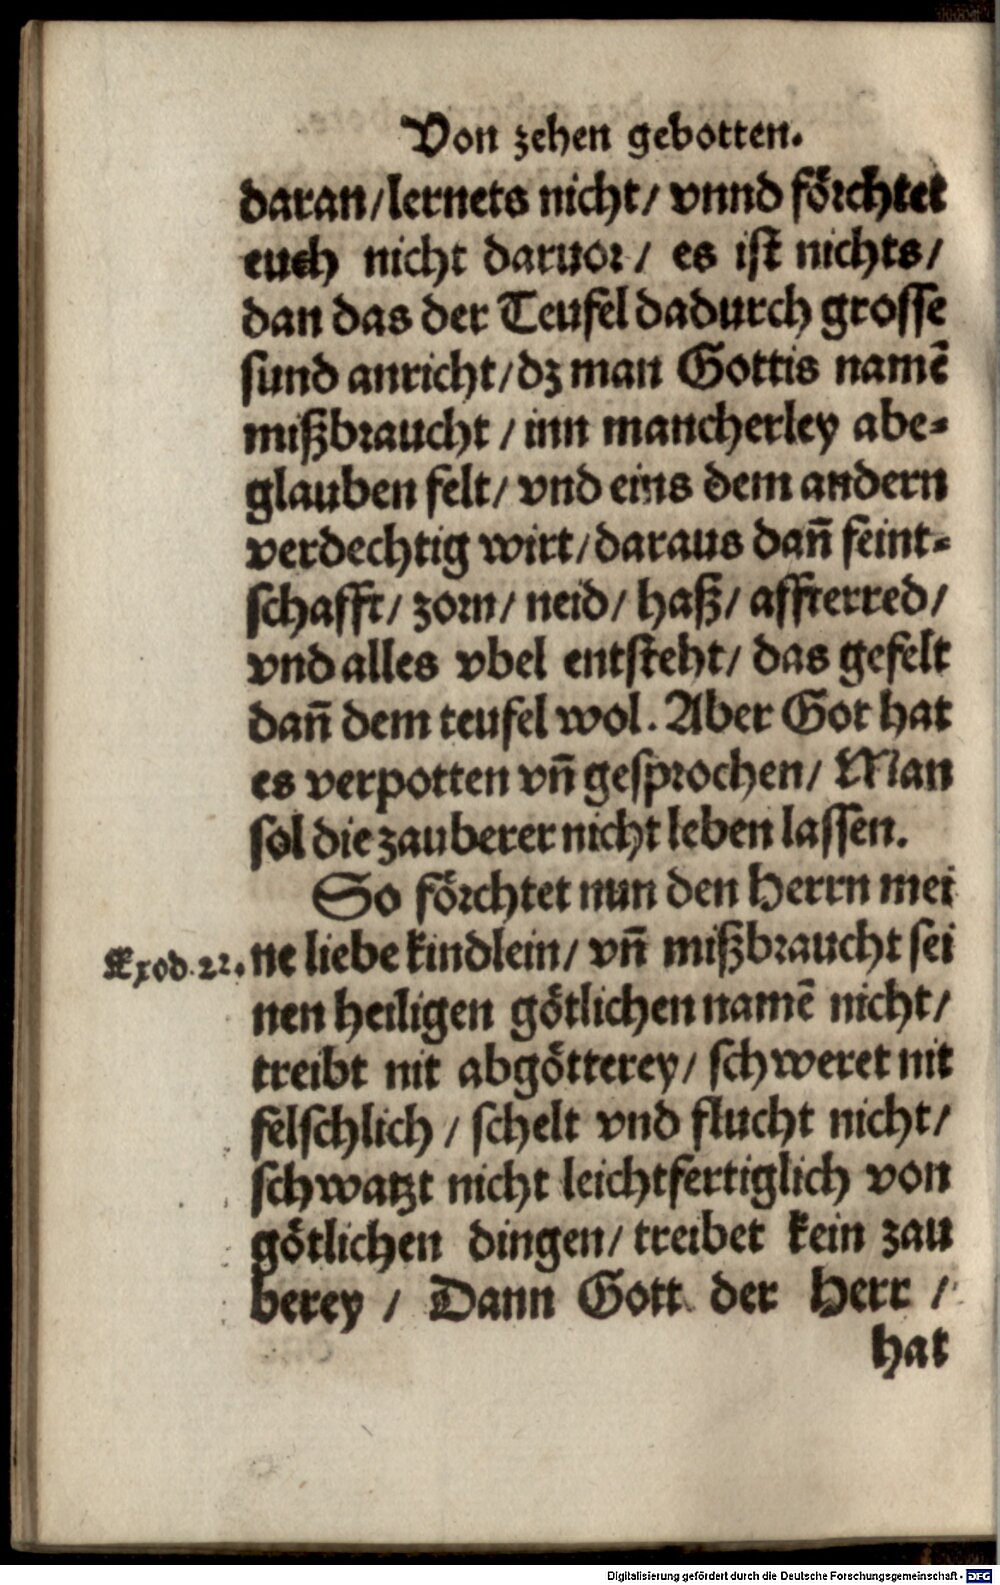 Von zehen gebotten.
daran/lernets nicht/ vnnd förchtet
euch nicht daruor/ es ist nichts/
dan das der Teufel dadurch grosse
sund anricht/dz man Gottis namē
mißbraucht/inn mancherley abe-
glauben felt/ vnd eins dem andern
verdechtig wirt/daraus dañ feint-
schafft/ zorn/ neid/ haß/ affterred/
vnd alles vbel entsteht/ das gefelt
dañ dem teufel wol. Aber Got hat
es verpotten vñ gesprochen/ Man
sol die zauberer nicht leben lassen.
So förchtet nun den Herrn mei
Exod.22. ne liebe kindlein/ vñ mißbraucht sei
nen heiligen götlichen namē nicht/
treibt nit abgötterey/ schweret nit
felschlich/ schelt vnd flucht nicht/
schwatzt nicht leichtfertiglich von
götlichen dingen/ treibet kein zau
berey/ Dann Gott der Herr/
hat
Digitalisierung gefördert durch die Deutsche Forschungsgemeinschaft - DFG